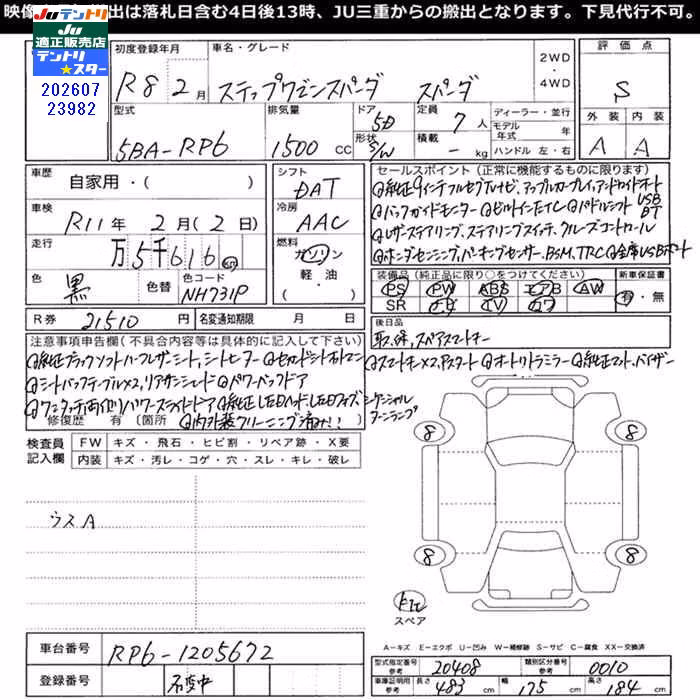 映像 出は落札日含む4日後13時、JU三重からの搬出となります。下見代行不可。
JUテントリ JU
適正販売店
テントリ
★スター
202607
23982
初度登録年月 R8 2月
車名・グレード ステップワゴンスパーダ スパーダ
2WD・4WD
評価点 S
外装 A 内装 A
型式 5BA-RP6
排気量 1500 CC
ドア 5D
形状 S/W
定員 7人
積載 - kg
ディーラー・並行
モデル年式 年
ハンドル 左・右
車歴 自家用・( )
車検 R11年 2月(2日)
走行 万5千616 km
色 黒 色替
色コード NH731P
シフト DAT
冷房 AAC
燃料 ガソリン
軽油
・( )
セールスポイント(正常に機能するものに限ります)
純正9インチフルセグTVナビ、アップルカープレイ、アンドロイドオート
バックガイドモニター ビルトインETC パドルシフト USB BT
レザーステアリング、ステアリングスイッチ、クルーズコントロール
ホンダセンシング、パーキングセンサー、BSM、TRC 全席USBポート
装備品(純正品に限り○をつけてください)
PS PW ABS エアB AW
SR ナビ TV カワ
新車保証書 有・無
R券 21510円
名変通知期限 月 日
後日品
取、保、スペアスマートキー
注意事項申告欄(不具合内容等は具体的に記入して下さい)
純正ブラックソフトハーフレザーシート、シートヒーター セカンドシートオットマン
スマートキー×2、Pスタート オートリトラミラー 純正マット、バイザー
シートバックテーブル×2、リアサンシェード パワーバックドア
ワンタッチ両側パワースライドドア 純正LEDヘッド、LEDフォグ、シーケンシャルターンランプ
修復歴 有(箇所 内外装クリーニング済み!!
検査員記入欄
FW キズ・飛石・ヒビ割・リペア跡・X要
内装 キズ・汚レ・コゲ・穴・スレ・キレ・破レ
ウスA
8
8
8
8
スペア
A-キズ E-エクボ U-凹み W-補修跡 S-サビ C-腐食 XX-交換済
車台番号 RP6-1205672
登録番号 名変中
型式指定番号 参考 20408
類別区分番号 参考 0010
車庫証明用 参考
長さ 483 cm
幅 175 cm
高さ 184 cm